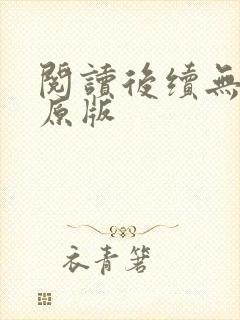 閱讀後續無
原版
衣青箬